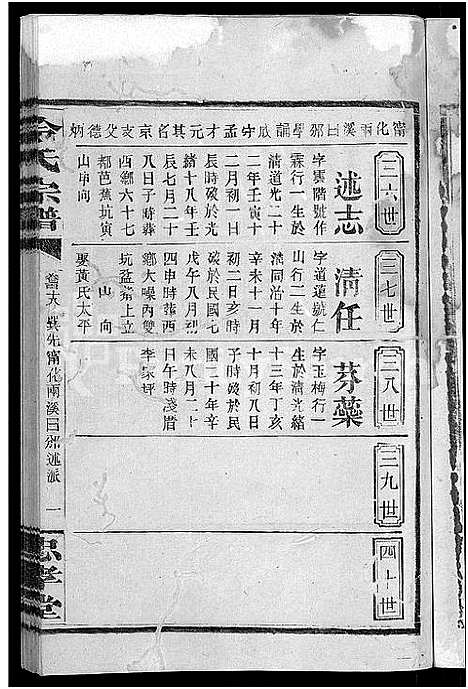 三六世
三七世
三八世
三九世
四十世
述志
字雲階號作
霖行一生於
清道光二十
二年壬寅十
二月初一日
辰時歿於光
緒十八年壬
辰七月二十
八日子時葬
西鄉六十七
都芭蕉坑寅
山申向
清任
字道遠號仁
山行二生於
清同治十年
辛未十一月
初二日亥時
歿於民國七
戊午八月初
四申時葬西
鄉大噪內雙
坑盆窩上立
山 向
娶黃氏太平
芬藥
字玉梅行一
生於清光緒
十三年丁亥
十月初八日
子時歿於民
國二十年辛
未八月二十
日午時淺厝
李家坪
氏宗譜
甯化雨溪曰邠述派
一
忠孝堂